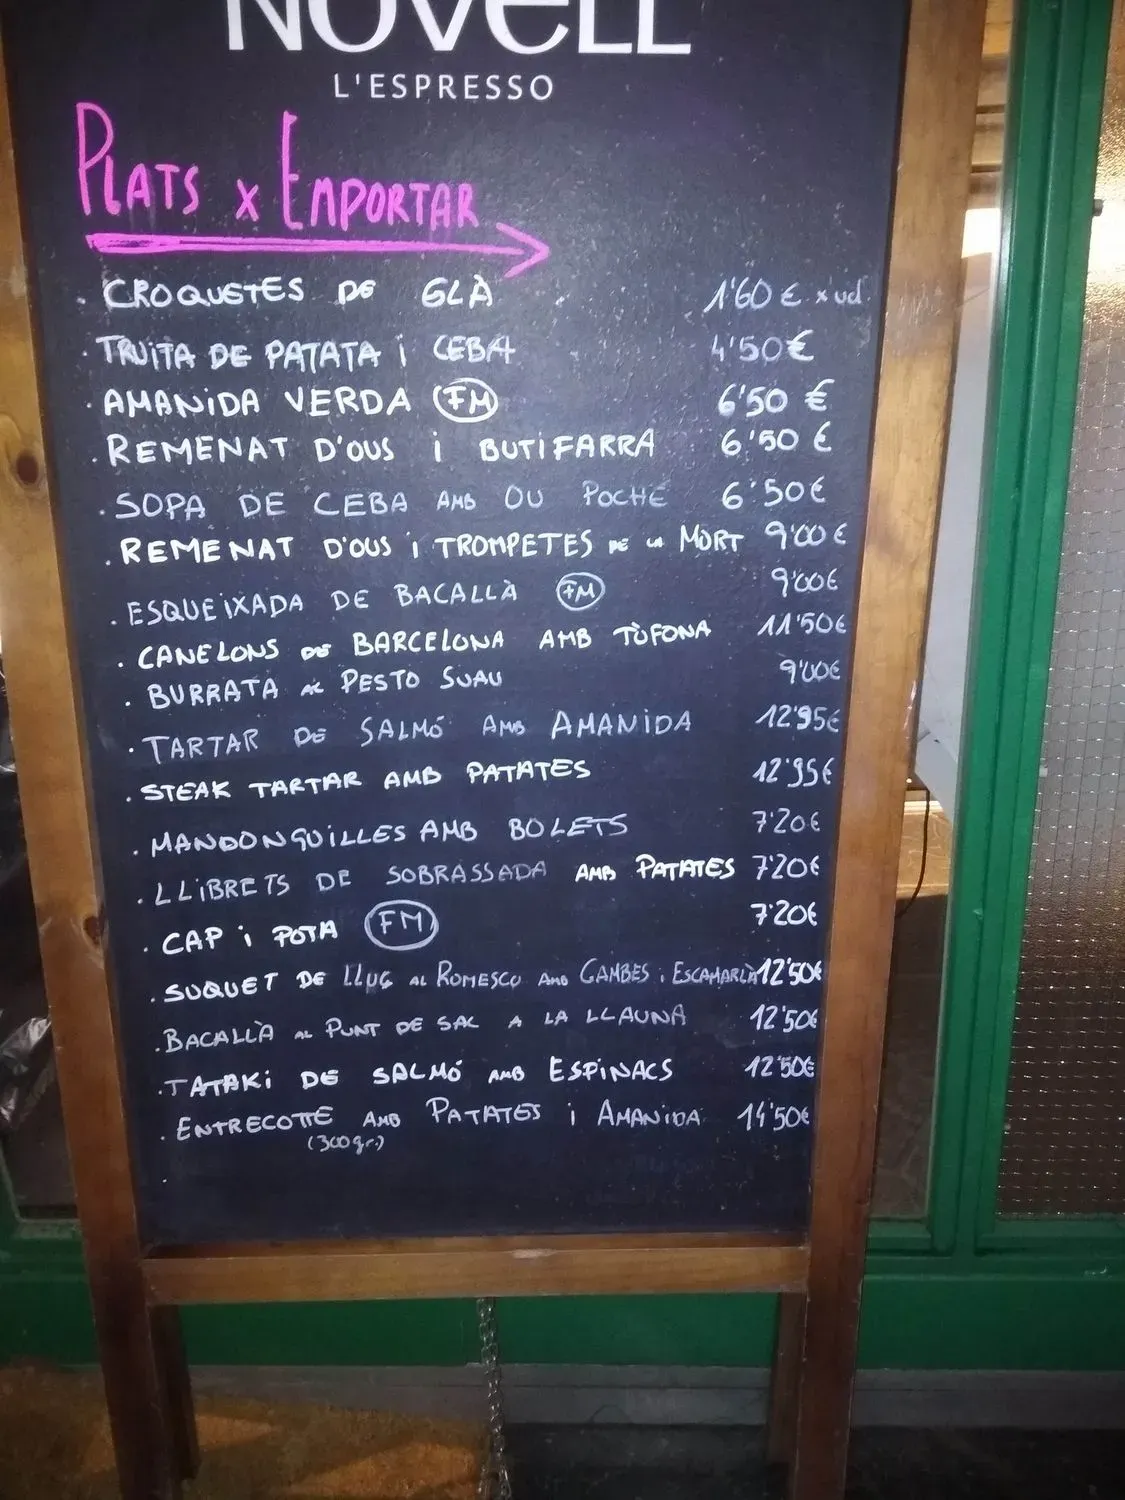 NOVELL
L'ESPRESSO
PLATS x EMPORTAR
· CROQUETES DE GLÀ 1'60 € x ud.
· TRUITA DE PATATA i CEBA 4'50€
· AMANIDA VERDA FM 6'50 €
· REMENAT D'OUS i BUTIFARRA 6'50 €
· SOPA DE CEBA AMB OU POCHÉ 6'50€
· REMENAT D'OUS i TROMPETES DE LA MORT 9'00€
· ESQUEIXADA DE BACALLÀ FM 9'00€
· CANELONS DE BARCELONA AMB TÒFONA 11'50€
· BURRATA AL PESTO SUAU 9'00€
· TARTAR DE SALMÓ AMB AMANIDA 12'95€
· STEAK TARTAR AMB PATATES 12'95€
· MANDONGUILLES AMB BOLETS 7'20€
· LLIBRETS DE SOBRASSADA AMB PATATES 7'20€
· CAP i POTA FM 7'20€
· SUQUET DE LLUÇ AL ROMESCU AMB GAMBES i ESCAMARLÀ 12'50€
· BACALLÀ AL PUNT DE SAL A LA LLAUNA 12'50€
· TATAKI DE SALMÓ AMB ESPINACS 12'50€
· ENTRECOTTE AMB PATATES i AMANIDA 14'50€
(300gr)